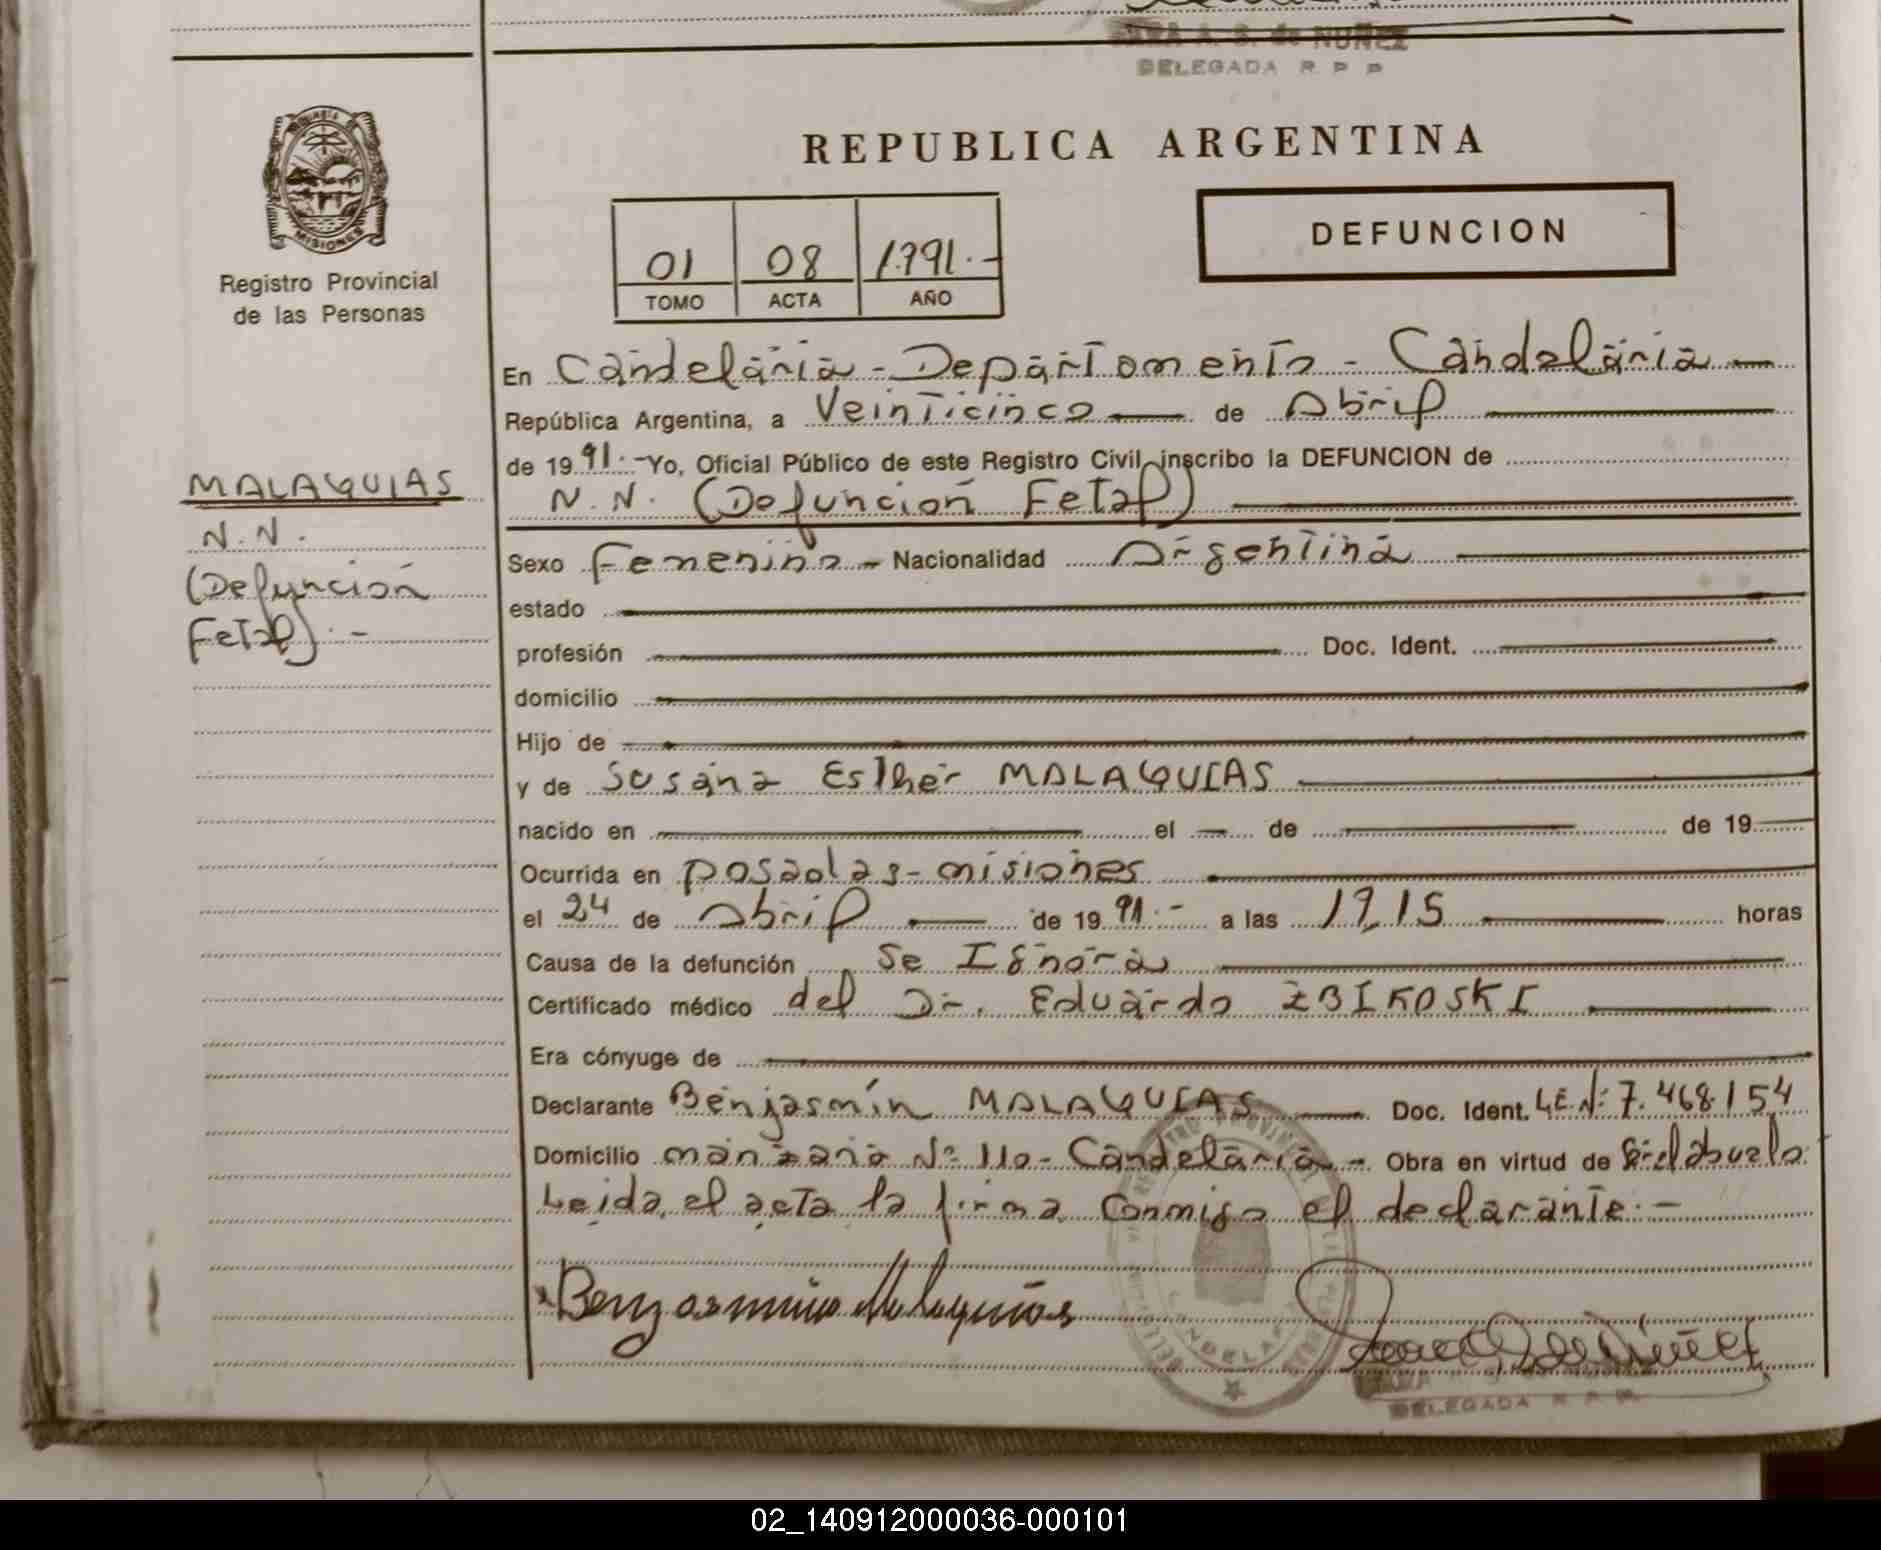 SARA A. S. de NUÑEZ
DELEGADA R P P
MISIONES
Registro Provincial
de las Personas
REPUBLICA ARGENTINA
01 08 1.991.-
TOMO ACTA AÑO
DEFUNCION
En Candelaria - Departamento - Candelaria -
República Argentina, a Veinticinco de Abril
de 1991.- Yo, Oficial Público de este Registro Civil, inscribo la DEFUNCION de
N.N. (Defunción Fetal)
MALAQUIAS
N.N.
(Defunción
Fetal).-
Sexo Femenino - Nacionalidad Argentina
estado
profesión Doc. Ident.
domicilio
Hijo de
y de Susana Esther MALAQUIAS
nacido en el de de 19
Ocurrida en posadas - misiones
el 24 de Abril de 1991.- a las 19,15 horas
Causa de la defunción Se Ignora
Certificado médico del Dr. Eduardo ZBIKOSKI
Era cónyuge de
Declarante Benjasmín MALAQUIAS Doc. Ident. L.E.Nº: 7.468.154
Domicilio manzana Nº 110 - Candelaria -. Obra en virtud de Ser el abuelo.
Leida el acta la firma conmigo el declarante.-
Benjasmin Malaquias
CANDELARIA
DELEGADA R P P
02_140912000036-000101